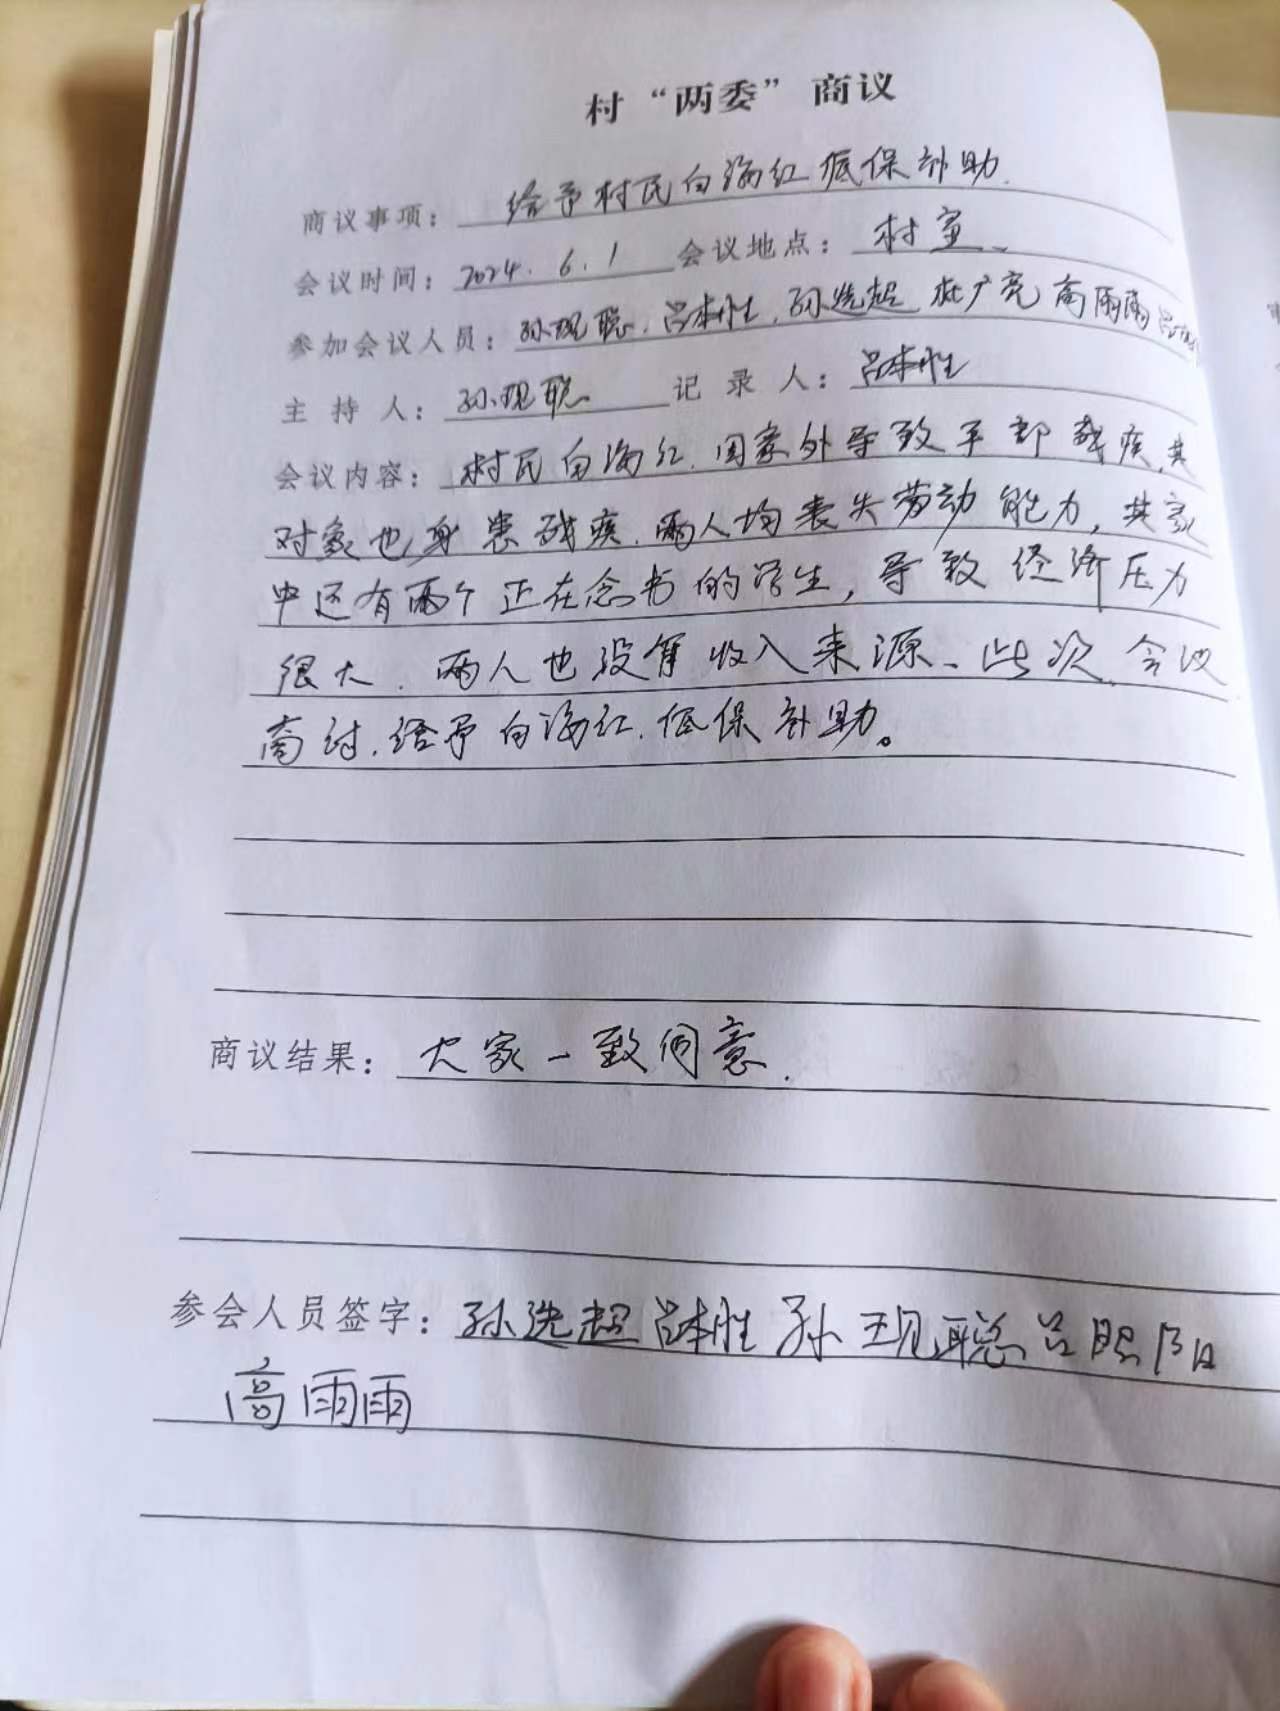 村“两委”商议
商议事项：给予村民白海红低保补助.
会议时间：2024.6.1 会议地点：村室、
参加会议人员：孙现聪.吕本胜.孙选超 杜广亮 高雨雨
主持人：孙现聪 记录人：吕本胜
会议内容：村民白海红.因意外导致手部残疾.其
对象也身患残疾.两人均丧失劳动能力，其家
中还有两个正在念书的学生，导致经济压力
很大.两人也没有收入来源、此次.会议
商讨.给予白海红.低保补助。
商议结果：大家一致同意.
参会人员签字：孙选超 吕本胜 孙现聪 吕照阳
高雨雨